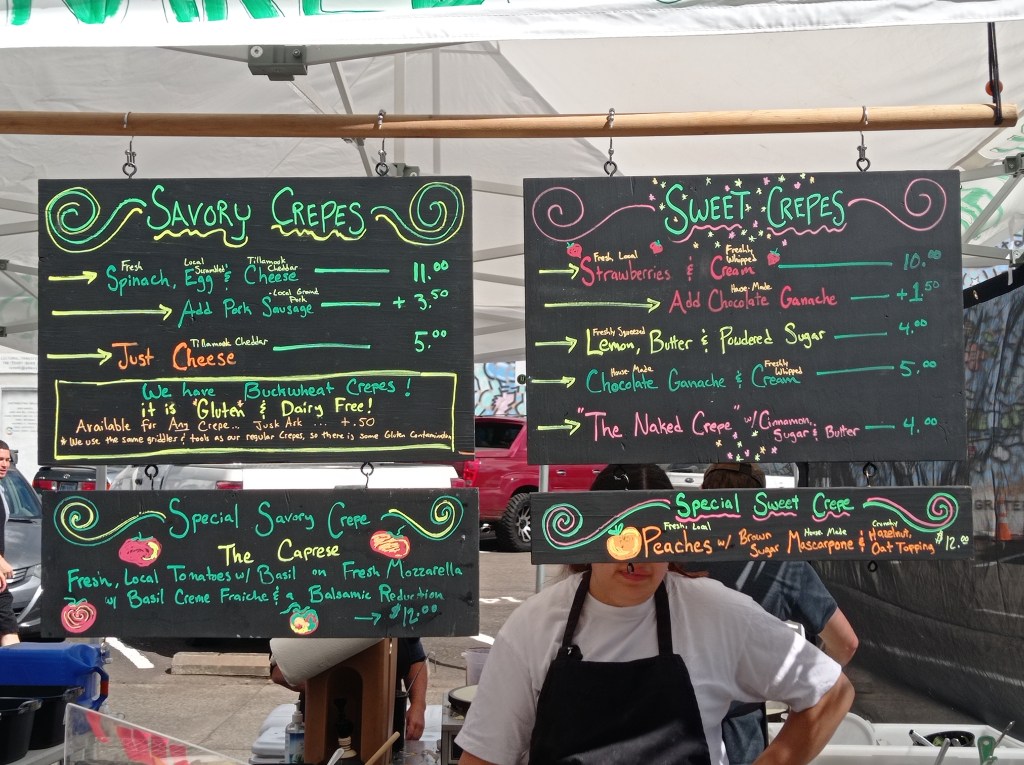 SAVORY CREPES
Fresh Local Scramblet' Tillamook Cheddar
Spinach, Egg & Cheese 11.00
Local Ground Pork
Add Pork Sausage + 3.50
Tillamook Cheddar
Just Cheese 5.00
We have Buckwheat Crepes!
it is "Gluten & Dairy Free!
Available for Any Crepe... Just Ask ... +.50
* We use the same griddles & tools as our regular Crepes, so there is some Gluten Contamination
Special Savory Crepe
The Caprese
Fresh, Local Tomatoes w/ Basil on Fresh Mozzarella
w/ Basil Creme Fraiche & a Balsamic Reduction
$12.00
SWEET CREPES
Fresh Local Freshly Whipped
Strawberries & Cream 10.00
House-Made
Add Chocolate Ganache +1.50
Freshly Squeezed
Lemon, Butter & Powdered Sugar 4.00
House-Made Freshly Whipped
Chocolate Ganache & Cream 5.00
"The Naked Crepe" w/ Cinnamon, Sugar & Butter 4.00
Special Sweet Crepe
Fresh, Local House-Made Crunchy
Peaches w/ Brown Sugar Mascarpone & Hazelnut, Oat Topping $12.00